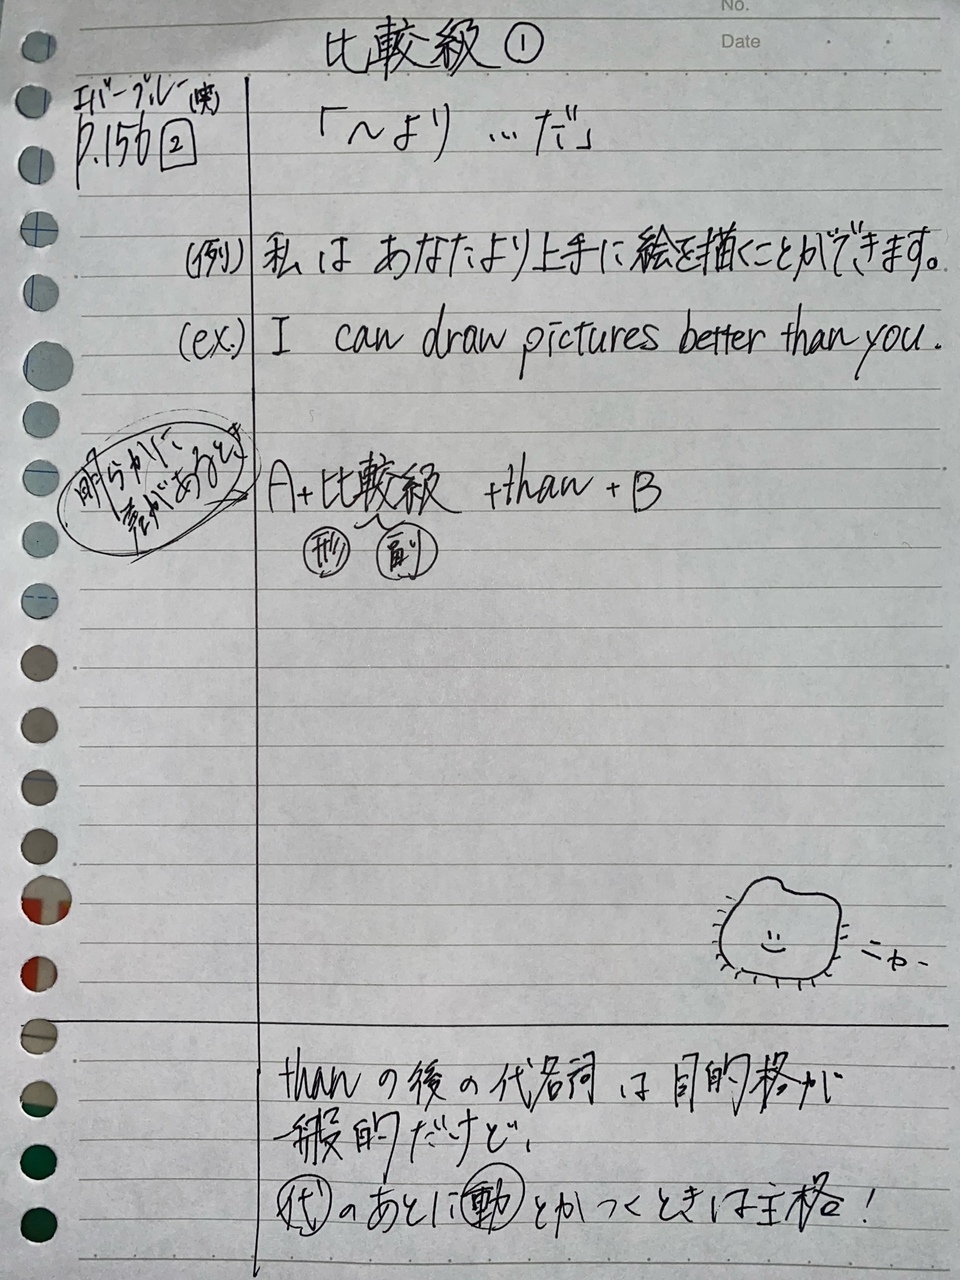 No.
Date
比較級 ①
エバーグルー(英)
P.156 2
「～より …だ」
(例) 私は あなたより上手に絵を描くことができます。
(ex.) I can draw pictures better than you.
明らかに
差があるとき
A+比較級 +than +B
形 副
ニャー
than の後の代名詞は目的格が
一般的だけど、
代のあとに動とかつくときは主格!